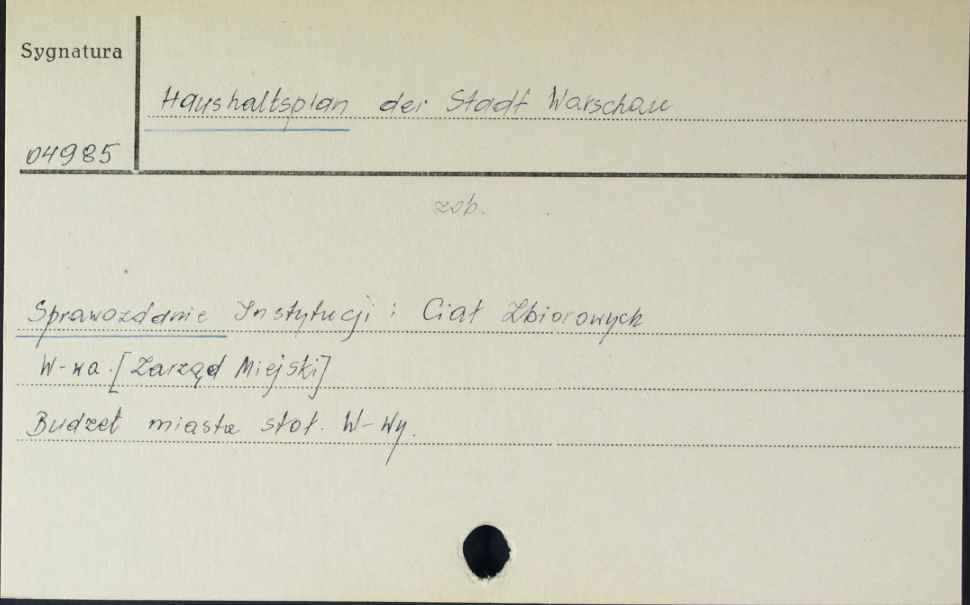 Sygnatura
Haushaltsplan der Stadt Warschau
04985
zob.
Sprawozdanie Instytucji i Ciał Zbiorowych
W-wa. [Zarząd Miejski]
Budżet miasta stoł. W-wy.